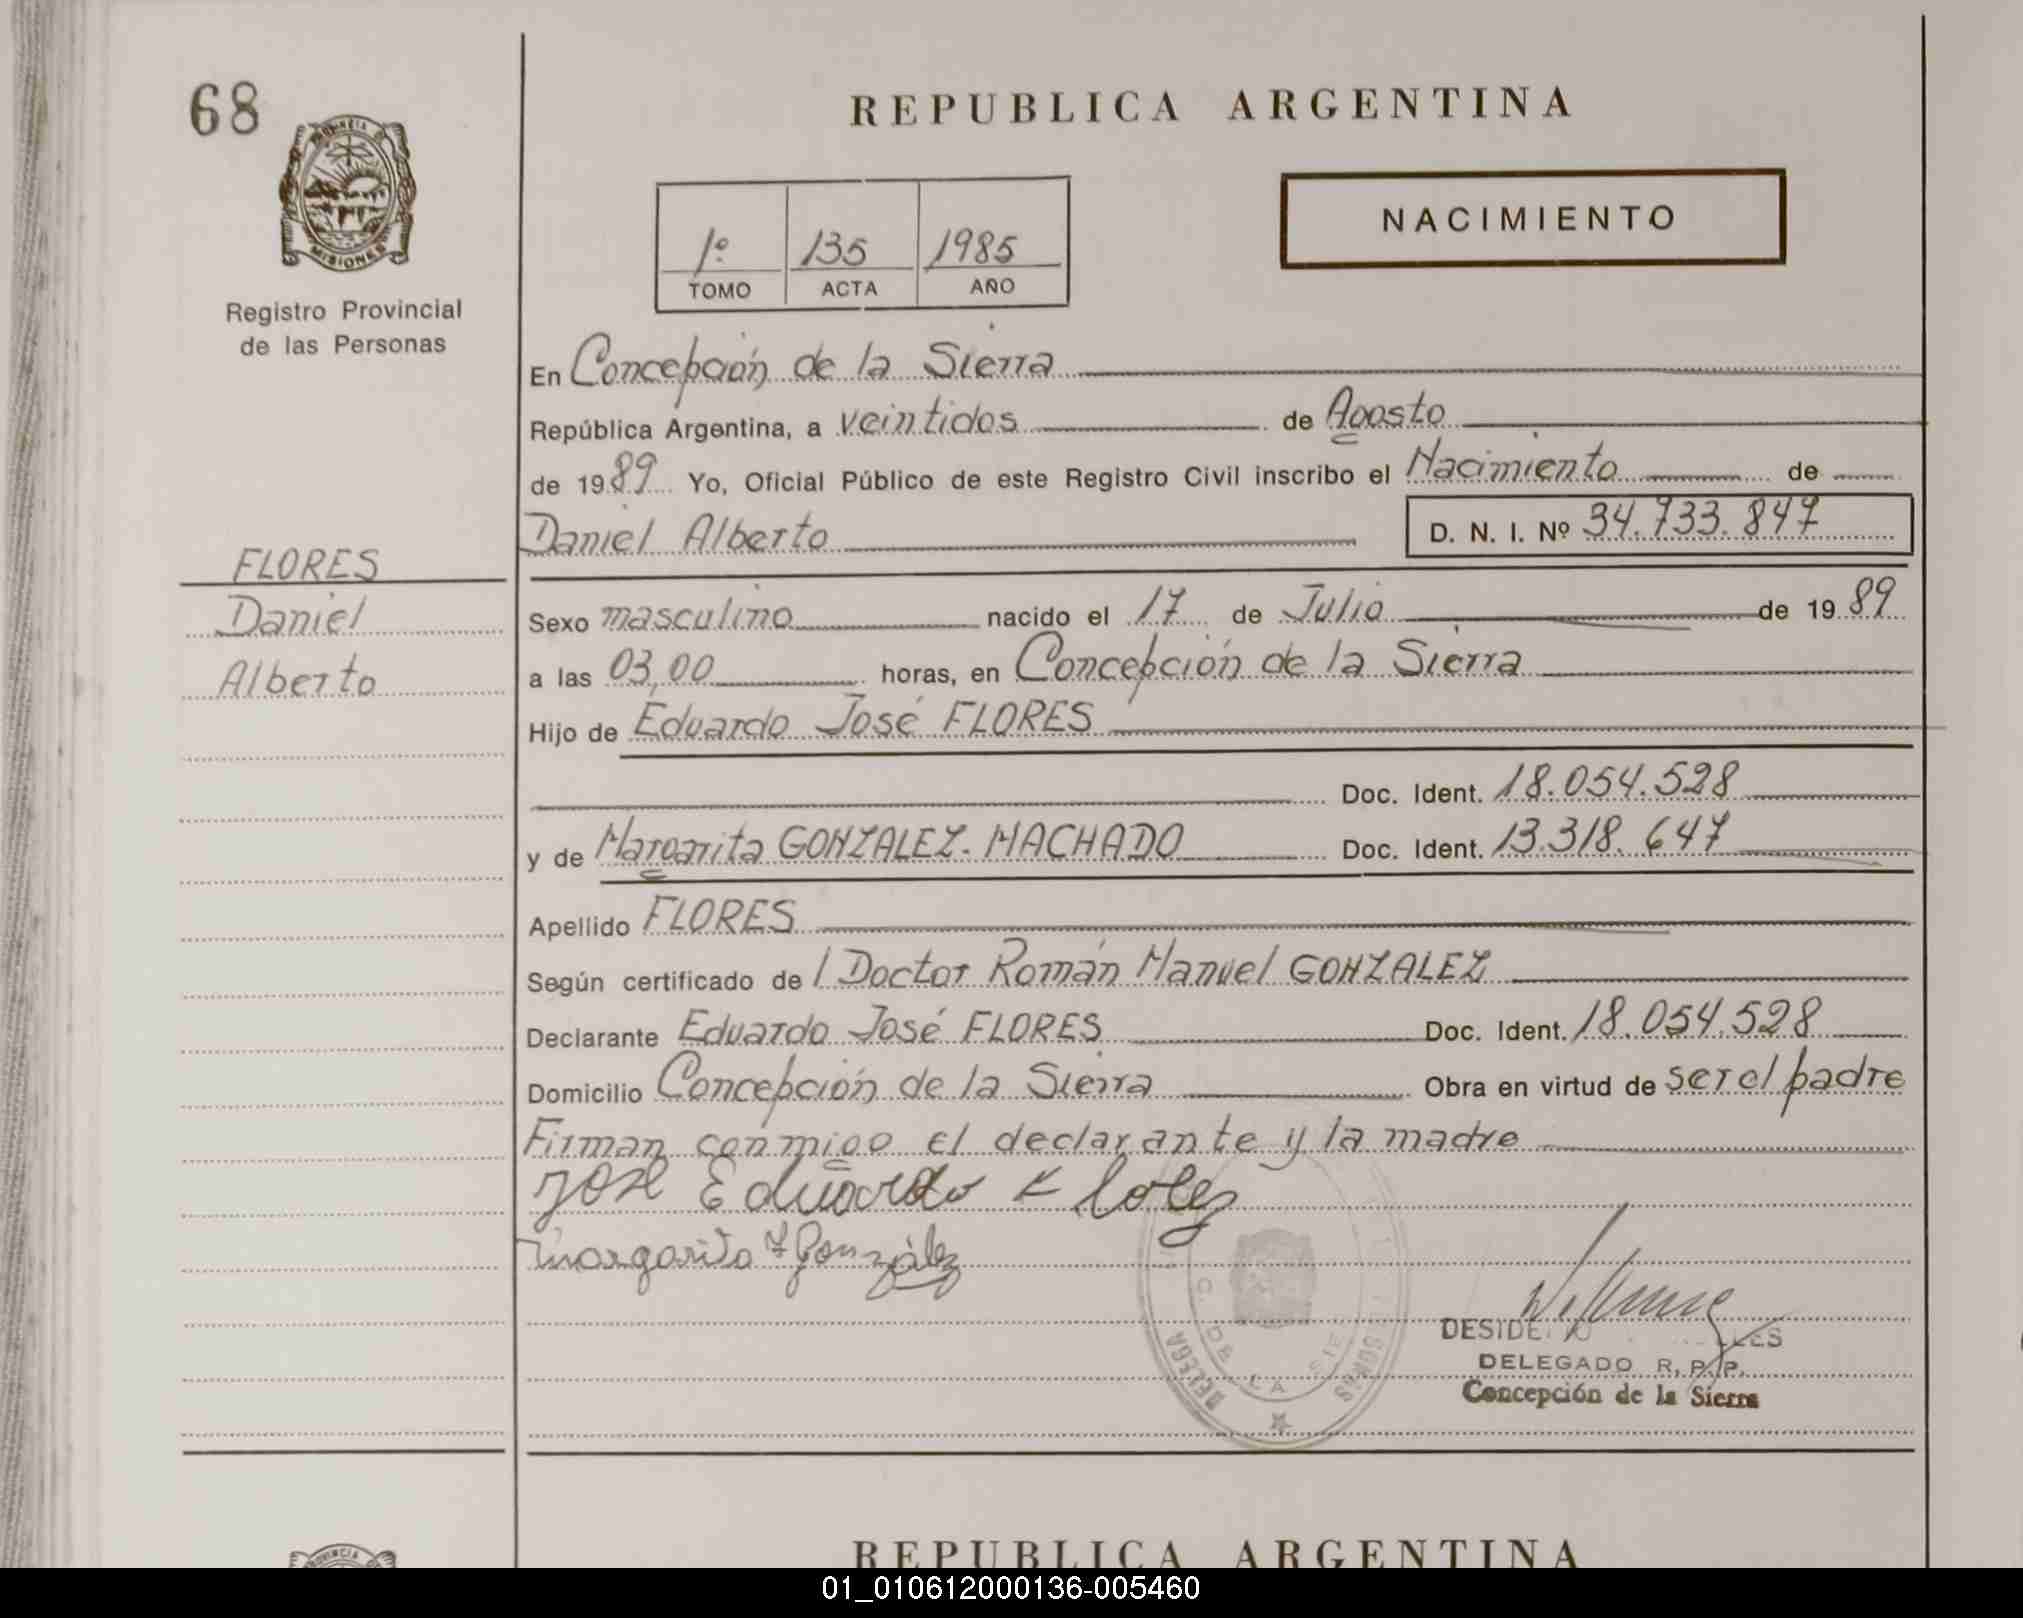 68
PROVINCIA DE
MISIONES
Registro Provincial
de las Personas
REPUBLICA ARGENTINA
1º 135 1985
TOMO ACTA AÑO
NACIMIENTO
En Concepción de la Sierra
República Argentina, a veintidos de Agosto
de 1989 Yo, Oficial Público de este Registro Civil inscribo el Nacimiento de
Daniel Alberto D. N. I. Nº 34.733.847
FLORES
Daniel
Alberto
Sexo masculino nacido el 17 de Julio de 1989
a las 03,00 horas, en Concepción de la Sierra
Hijo de Eduardo José FLORES
Doc. Ident. 18.054.528
y de Margarita GONZALEZ-MACHADO Doc. Ident. 13.318.647
Apellido FLORES
Según certificado de l Doctor Román Manuel GONZALEZ
Declarante Eduardo José FLORES Doc. Ident. 18.054.528
Domicilio Concepción de la Sierra Obra en virtud de ser el padre
Firman conmigo el declarante y la madre
José Eduardo Flores
Margarita González
C. DE LA SIE
DELEGA
DELEGADO R. P. P.
Concepción de la Sierra
PROVINCIA
REPUBLICA ARGENTINA
01_010612000136-005460